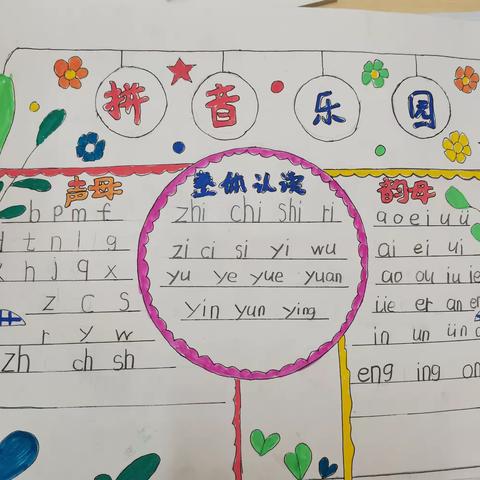 拼音乐园
声母
b p m f
d t n l g
k h j q x
z c s
r y w
zh ch sh
整体认读
zhi chi shi ri
zi ci si yi wu
yu ye yue yuan
yin yun ying
韵母
a o e i u ü
ai ei ui
ao ou iu ie
üe er an en
in un ün
eng ing